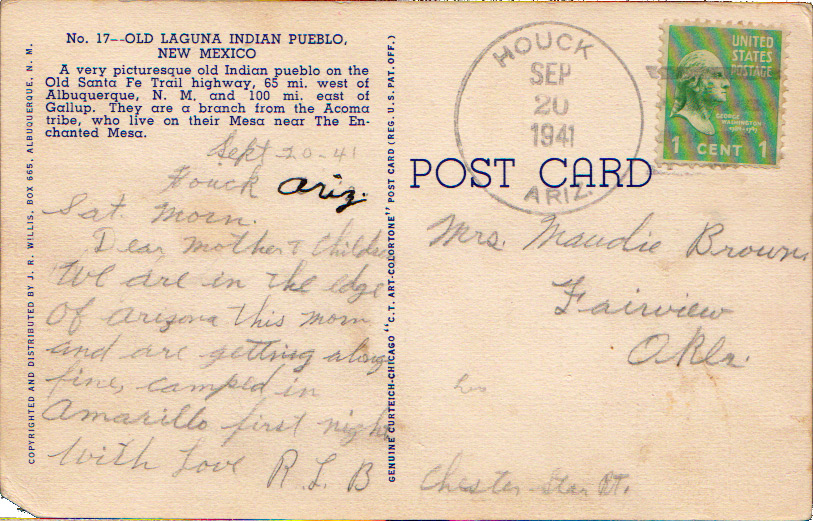 No. 17--OLD LAGUNA INDIAN PUEBLO,
NEW MEXICO
A very picturesque old Indian pueblo on the
Old Santa Fe Trail highway, 65 mi. west of
Albuquerque, N. M. and 100 mi. east of
Gallup. They are a branch from the Acoma
tribe, who live on their Mesa near The En-
chanted Mesa.
Sept 20-41
Houck Ariz.
Sat. Morn.
Dear Mother & Children
We are in the edge
Of Arizona this morn
and are getting along
fine, camped in
Amarillo first night
With Love R. L. B
COPYRIGHTED AND DISTRIBUTED BY J. R. WILLIS, BOX 665, ALBUQUERQUE, N. M.
GENUINE CURTEICH-CHICAGO "C.T. ART-COLORTONE" POST CARD (REG. U.S. PAT. OFF.)
HOUCK
SEP
20
1941
ARIZ.
UNITED
STATES
POSTAGE
GEORGE
WASHINGTON
1 CENT 1
POST CARD
Mrs. Maudie Brown,
Fairview
Okla.
Chester Star Rt.